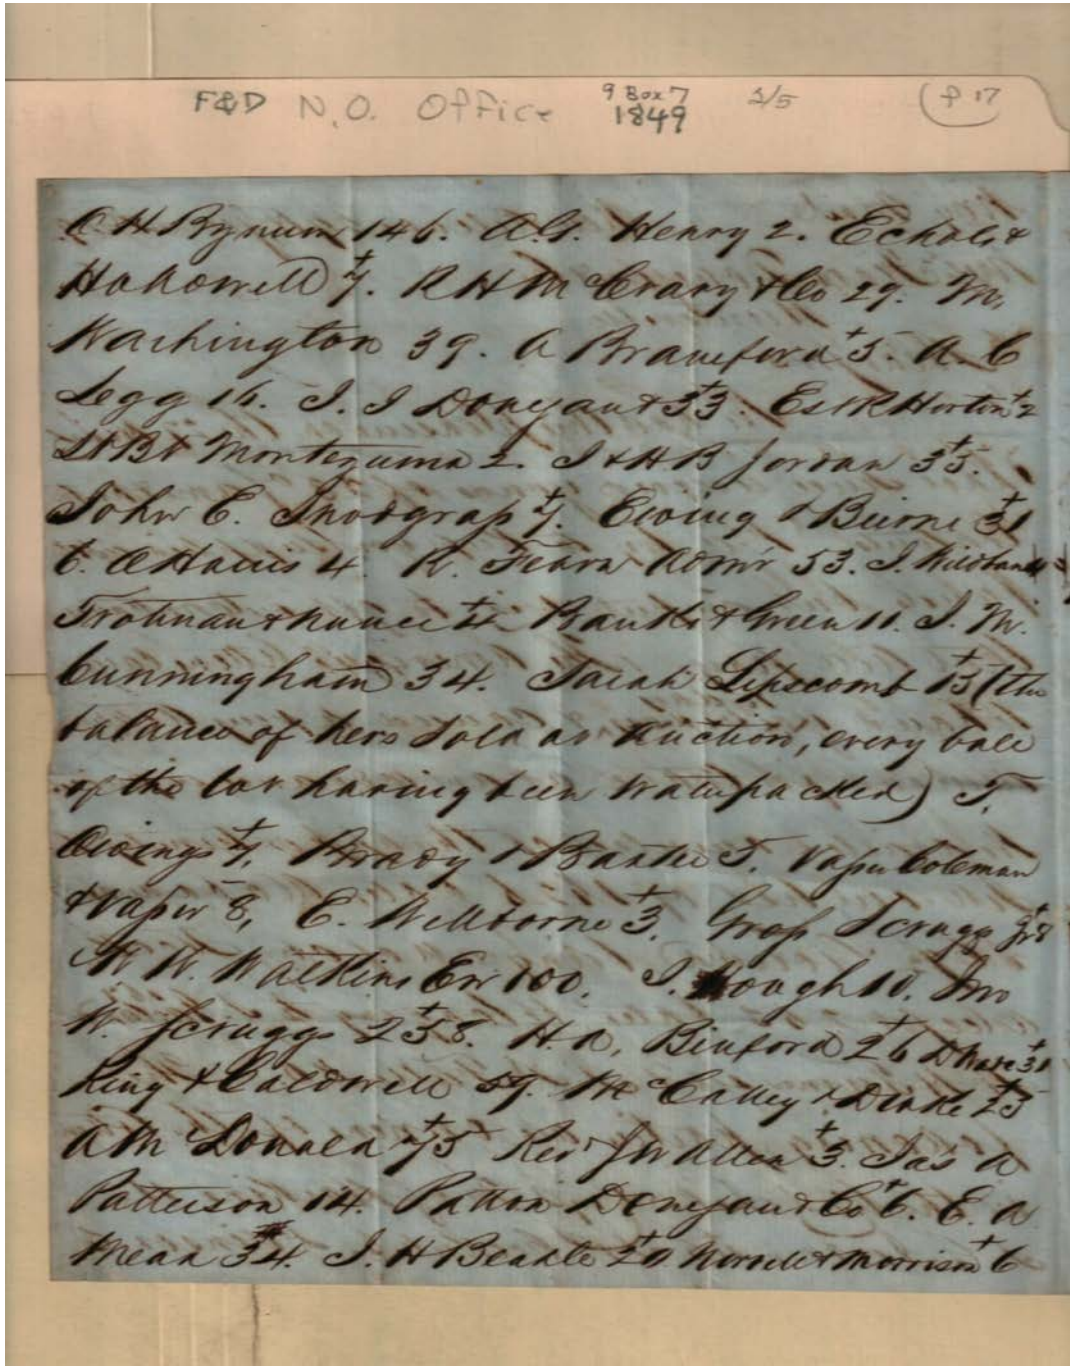 F&D N.O. Office 9 Box 7 1849 2/5 (P 17
O H Bynum 146. A.G. Henry 2. Echols &
Hollowell 7. R H McCrary & Co 29. M,
Washington 39. A Brauseford 5. A. C
Legg 16. J. J Donegan & 33. Es & R Horton 2
St Bt Montezuma 2. J & H B Jordan 35.
John C. Snodgrass 7. Ewing & Beirne 31
C. C Harris 4. R. Fearn Admr 53. J.
Trotman & Nance 4 Banks & Green 11. J. M.
Cunningham 34. Sarah Lipscomb 15 (the
balance of hers sold at Auction, every bale
of the lot having been waterpacked) T.
Owings 7, Brady & 5. Vasser Coleman
& Vasser 8, E. Wellborne 3. Gross Scruggs Jr 8
W. W. Watkins Exr 100. J. Hough 10. Jno
W. Scruggs 258. H. A, Binford 26 D Ware 31
King & Caldwell 59. McCalley & Drake 25
A McDonald 75 Revd J W Allen 3. Jas A
Patterson 14. Patton Donegan & Co 6. E. A
Mean 34. J. H Beadle 20 & Morrison 6